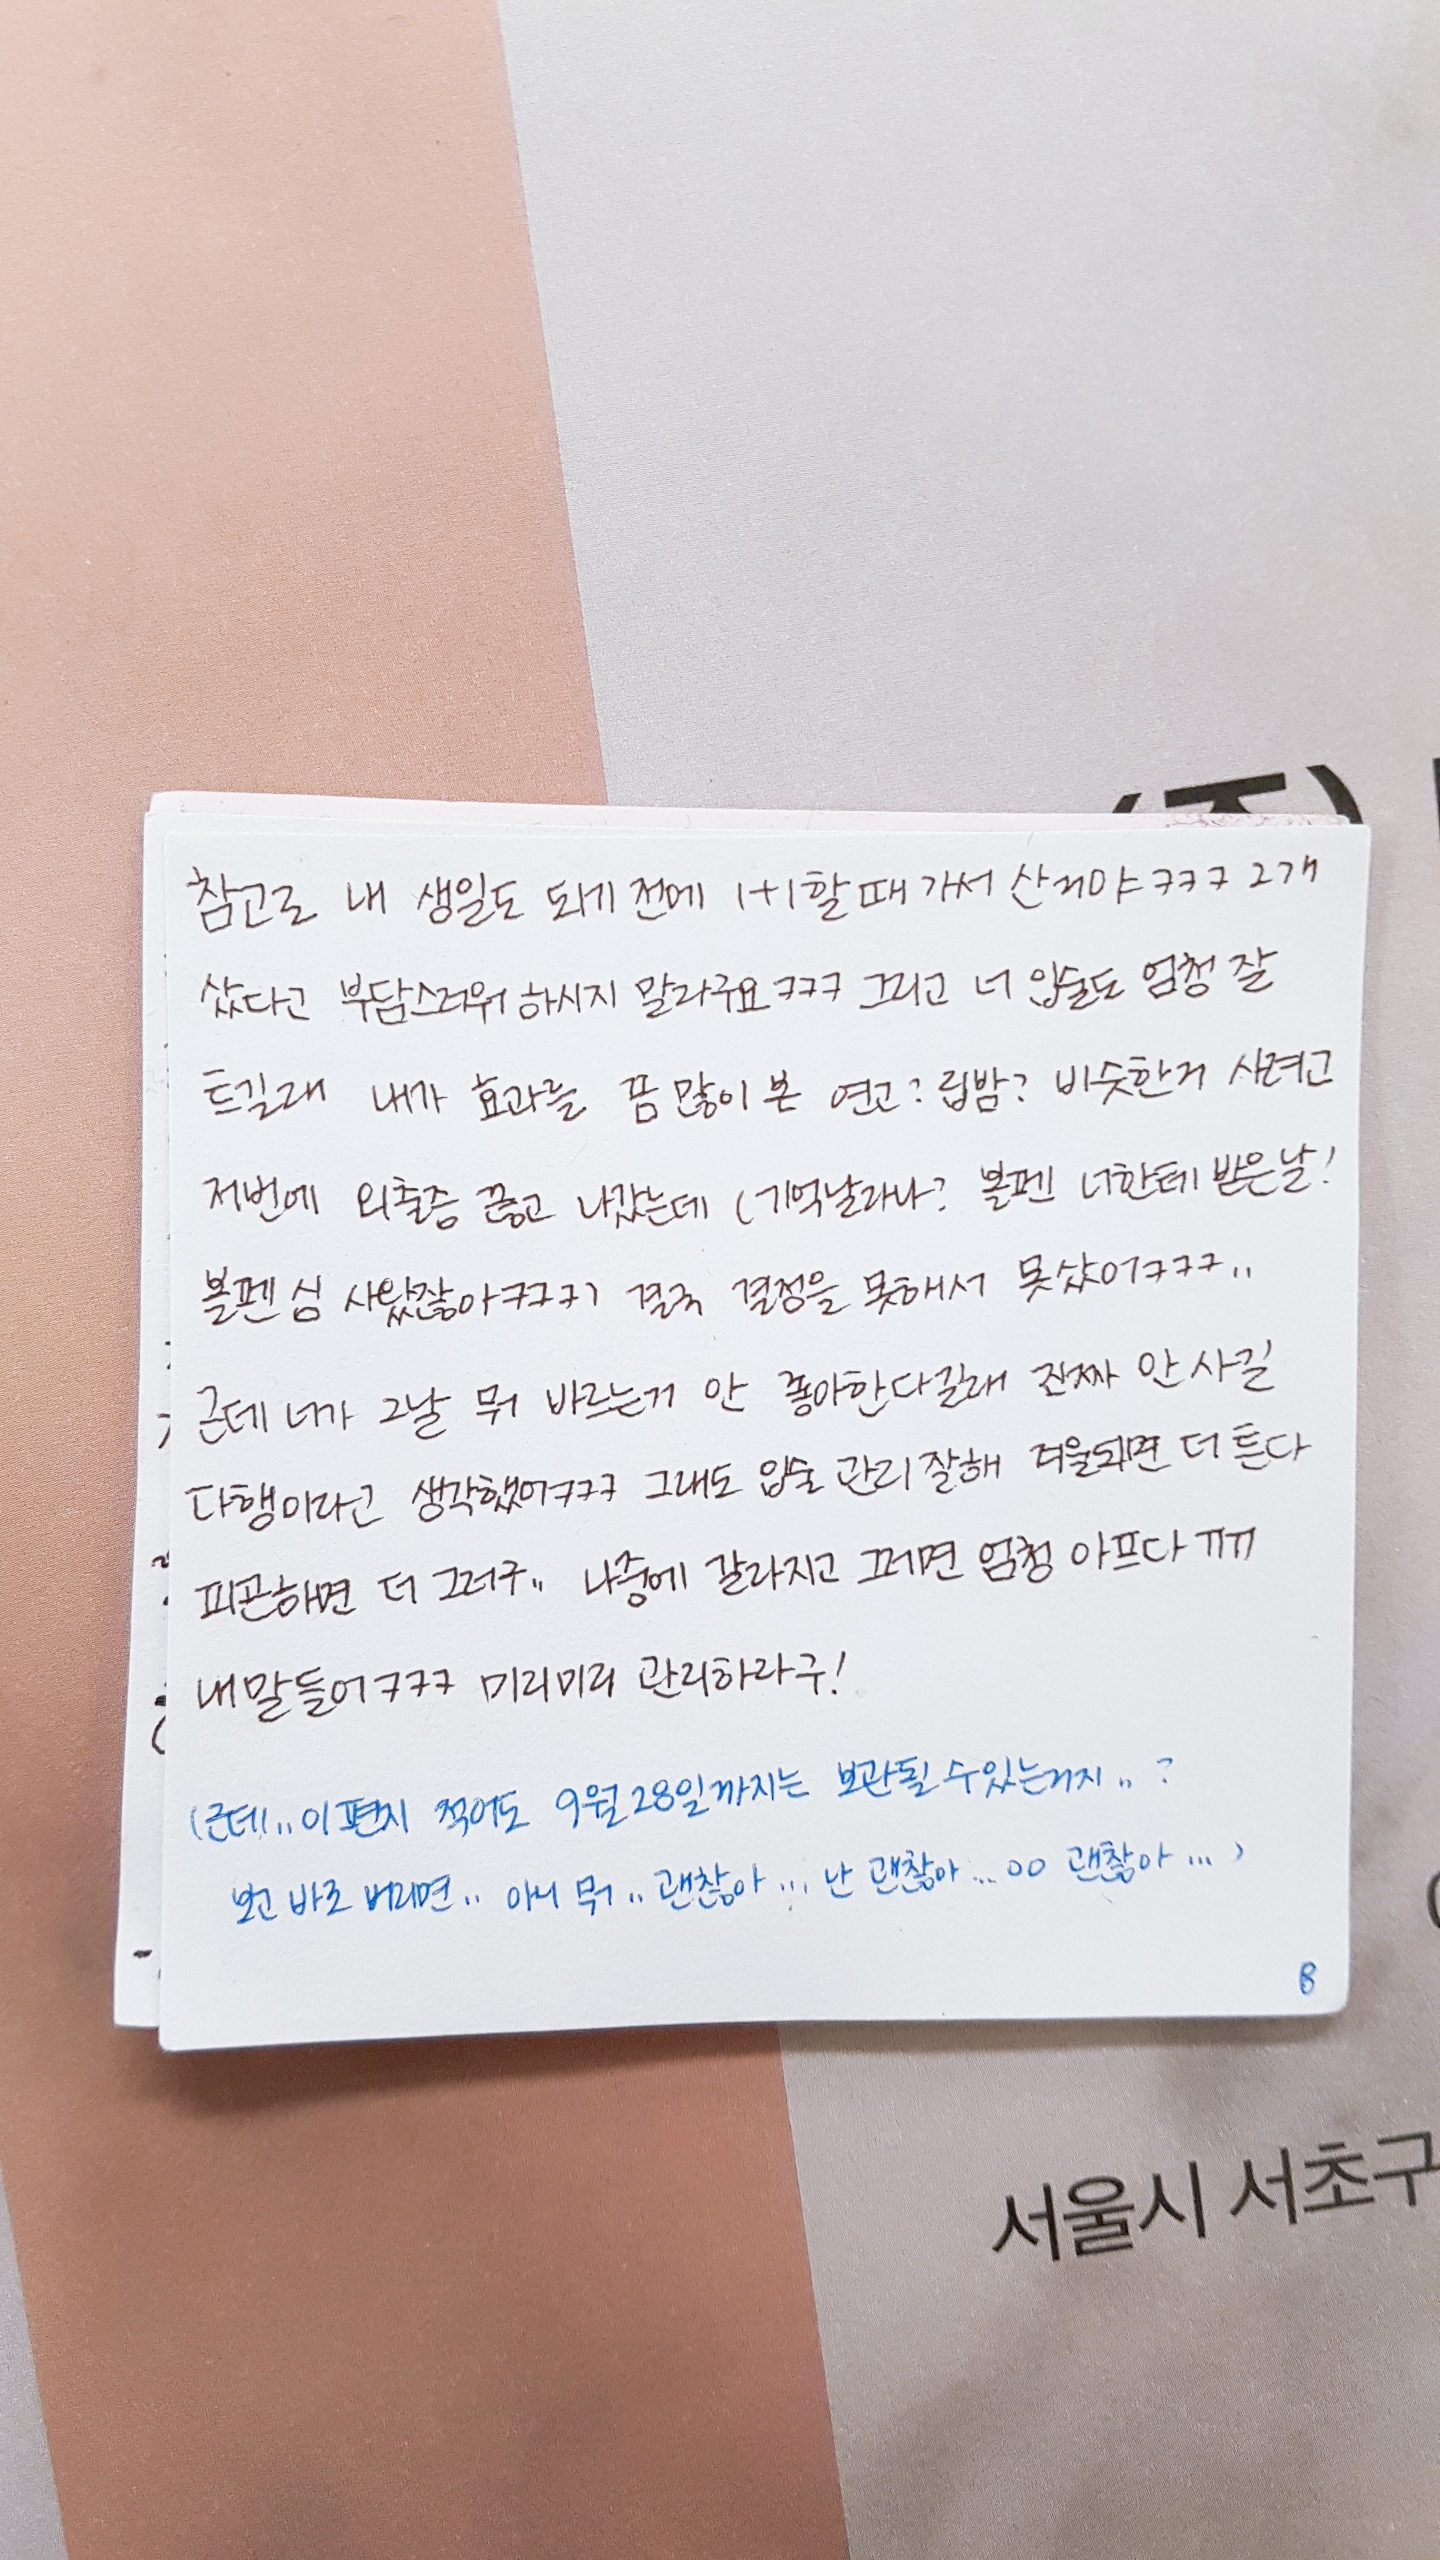 (주)
참고로 내 생일도 되게 전에 1+1할때 가서 산거야ㅋㅋㅋ 2개
샀다고 부담스러워 하시지 말라구요ㅋㅋㅋ 그리고 너 입술도 엄청 잘
트길래 내가 효과를 꼼 많이 본 연고? 립밤? 비슷한거 사려고
저번에 외출증 끊고 나갔는데 (기억날라나? 볼펜 너한테 받은날!
볼펜 심 사왔잖아ㅋㅋㅋ) 결국 결정을 못해서 못샀어ㅋㅋㅋ..
근데 너가 그날 뭐 바르는거 안 좋아한다길래 진짜 안 사길
다행이라고 생각했어ㅋㅋㅋ 그래도 입술 관리 잘해 겨울되면 더 튼다
피곤하면 더 그러구.. 나중에 갈라지고 그러면 엄청 아프다 ㅠㅠ
내말들어ㅋㅋㅋ 미리미리 관리하라구!
(근데.. 이 편지 적어도 9월 28일까지는 보관될 수 있는거지..?
보고 바로 버리면.. 아니 뭐.. 괜찮아... 난 괜찮아...ㅇㅇ 괜찮아...)
8
서울시 서초구